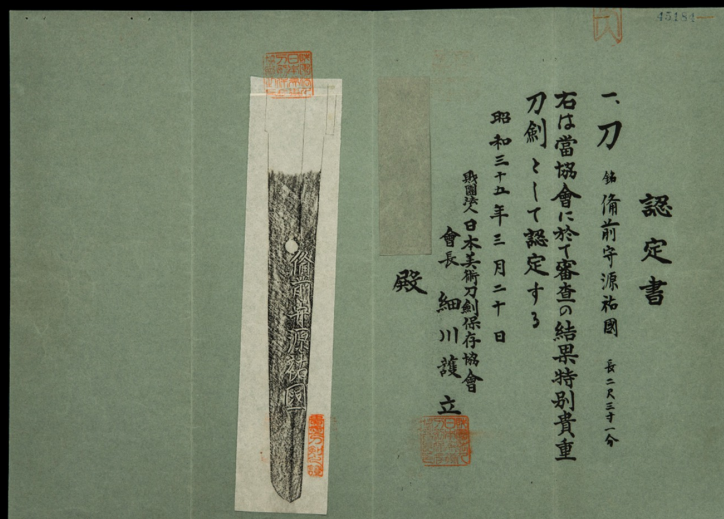 45184
認定書
一、刀 銘 備前守源祐國 長二尺三寸一分
右は當協會に於て審査の結果特別貴重
刀劍として認定する
昭和三十五年三月二十日
財團法人 日本美術刀劍保存協會
會長 細川護立
殿
備前守源祐國